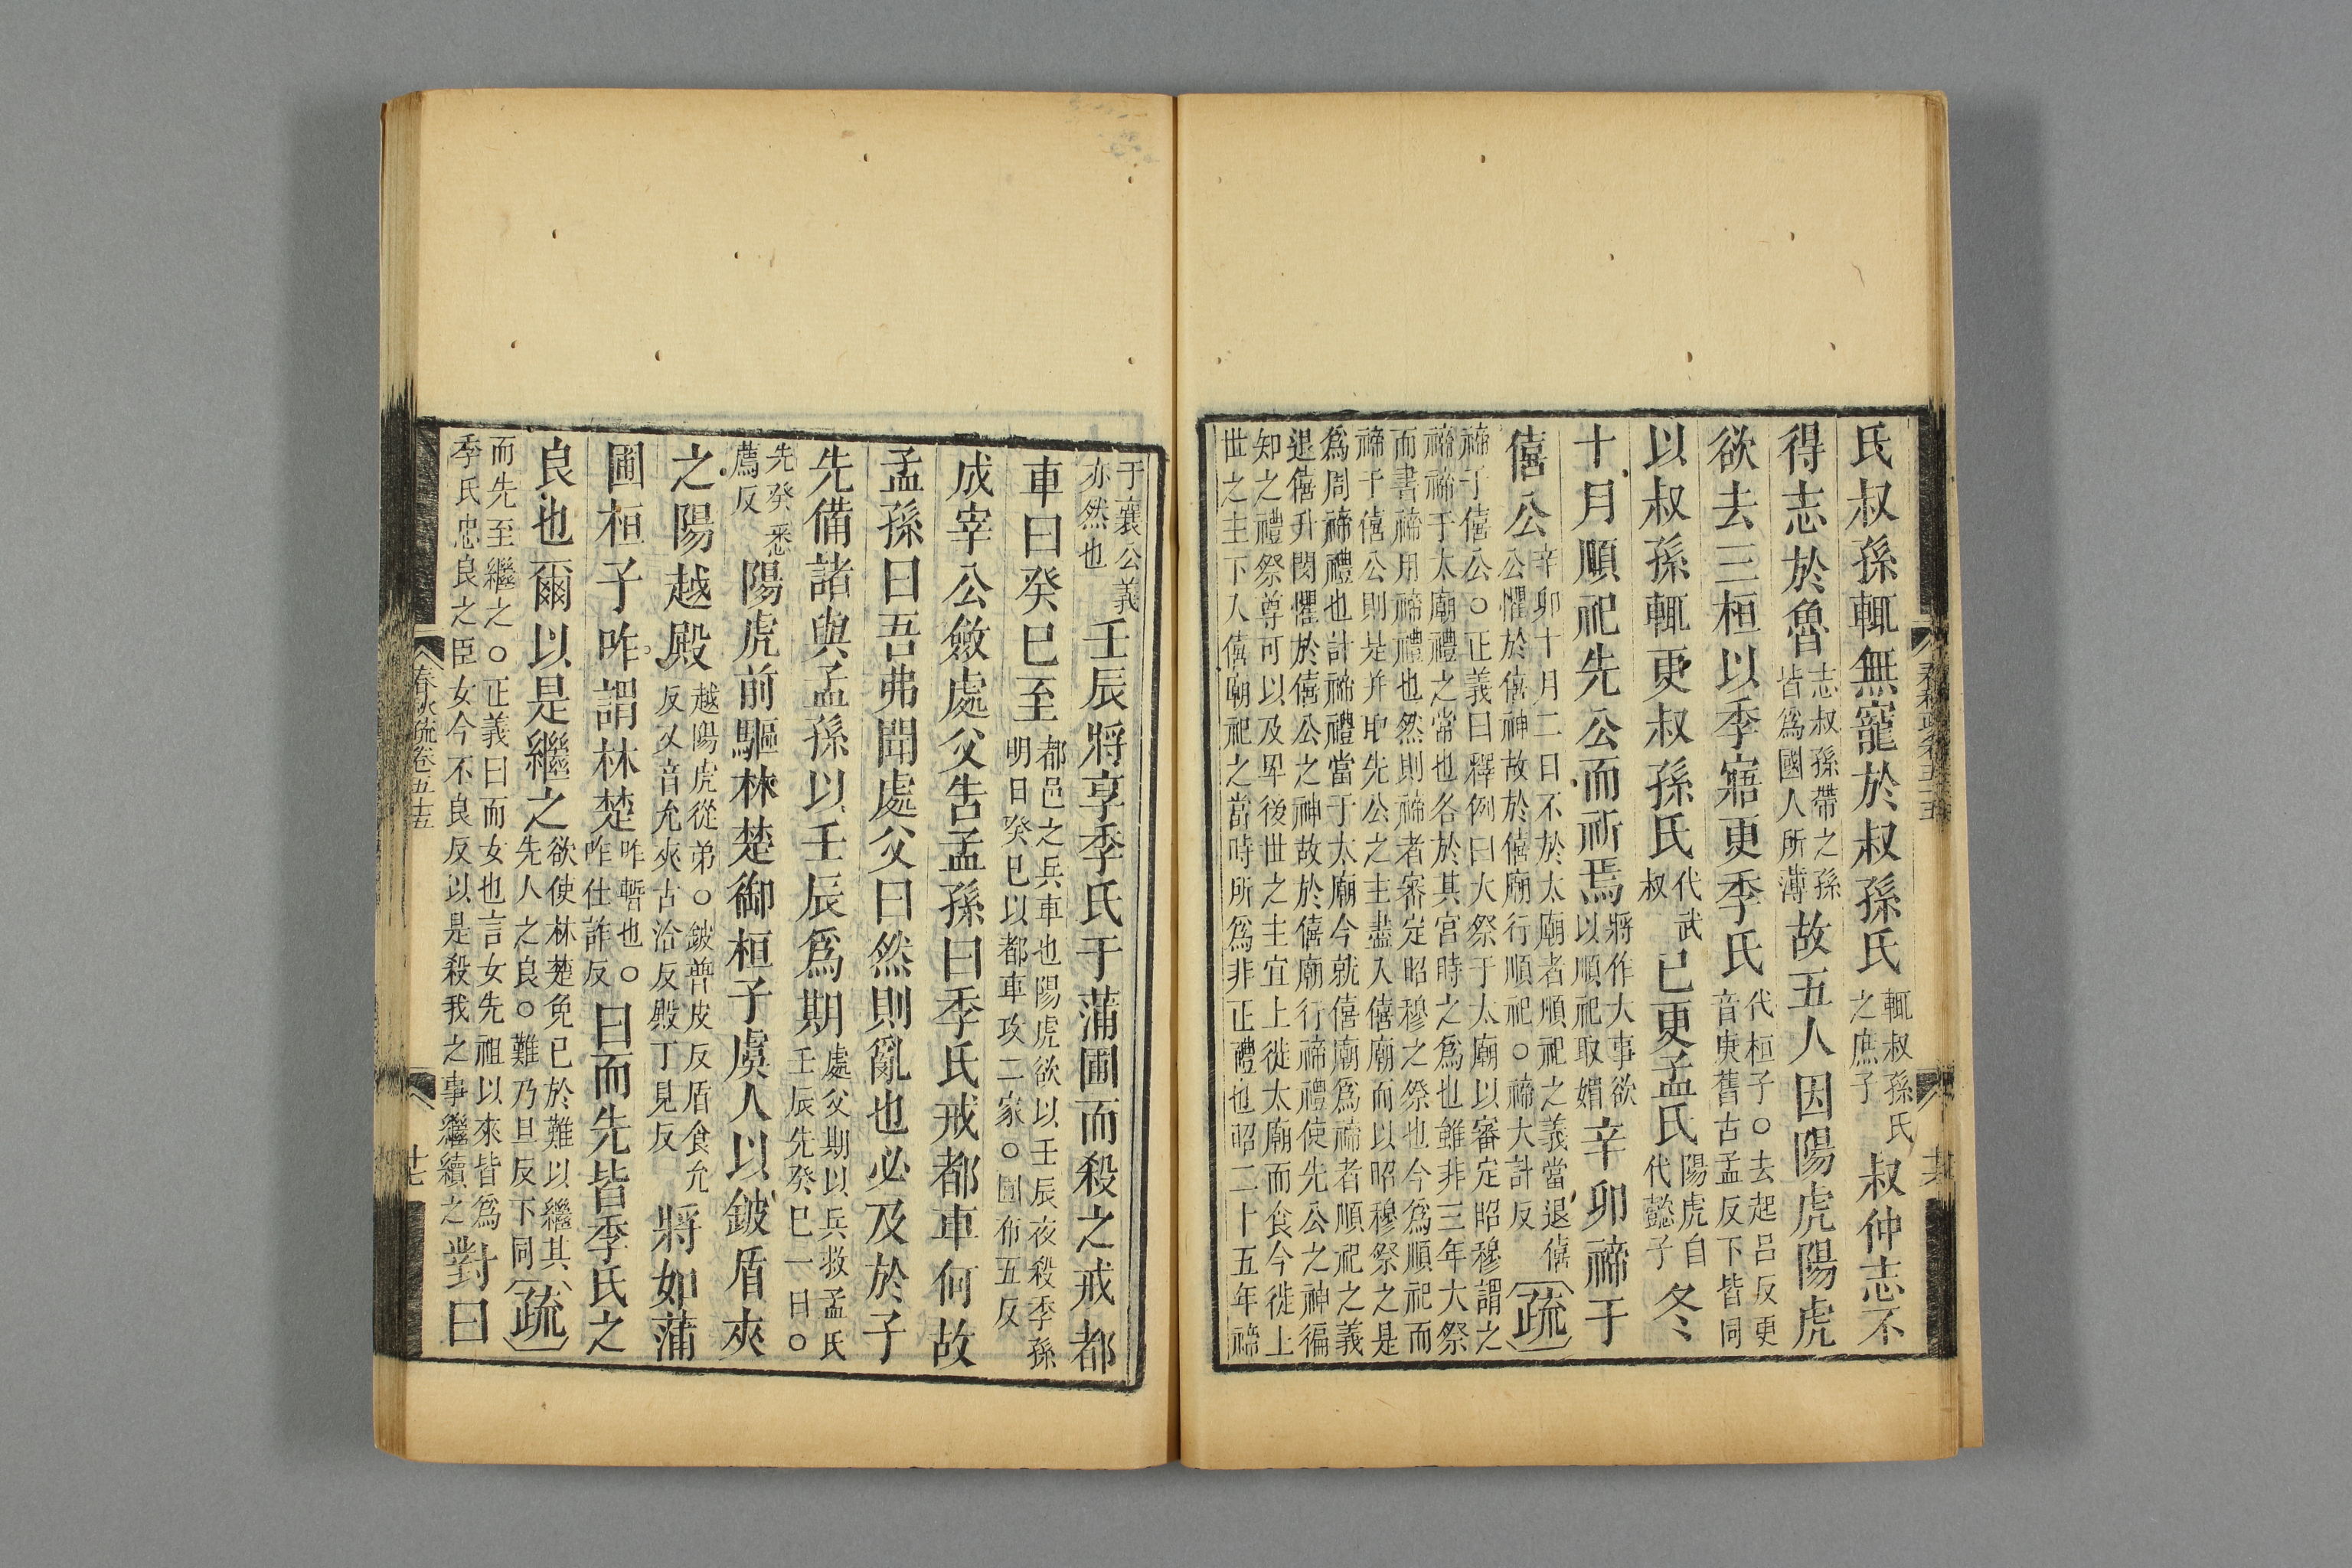 氏叔孫輒無寵於叔孫氏輒叔孫氏之庶子叔仲志不
得志於魯志叔孫帶之孫皆爲國人所薄故五人因陽虎陽虎
欲去三桓以季寤更季氏代桓子○去起呂反更音庚舊古孟反下皆同
以叔孫輒更叔孫氏代武叔已更孟氏陽虎自代懿子冬
十月順祀先公而祈焉將作大事欲以順祀取媚辛卯禘于
僖公辛卯十月二日不於太廟者順祀之義當退僖公懼於僖神故於僖廟行順祀○禘大計反疏
禘于僖公○正義曰釋例曰大祭于太廟以審定昭穆謂之
禘禘于太廟禮之常也各於其宮時之爲也雖非三年大祭
而書禘用禘禮也然則禘者審定昭穆之祭也今爲順祀而
禘于僖公則是并取先公之主盡入僖廟而以昭穆祭之是
爲周禘禮也計禘禮當于太廟今就僖廟爲禘者順祀之義
退僖升閔懼於僖公之神故於僖廟行禘禮使先公之神徧
知之禮祭尊可以及卑後世之主宜上徙太廟而食今徙上
世之主下入僖廟祀之當時所爲非正禮也昭二十五年禘
春秋疏卷五十五
共
于襄公義亦然也壬辰將享季氏于蒲圃而殺之戒都
車曰癸巳至都邑之兵車也陽虎欲以壬辰夜殺季孫明日癸巳以都車攻二家○圃布五反
成宰公斂處父告孟孫曰季氏戒都車何故
孟孫曰吾弗聞處父曰然則亂也必及於子
先備諸與孟孫以壬辰爲期處父期以兵救孟氏壬辰先癸巳一日○
先癸悉薦反陽虎前驅林楚御桓子虞人以鈹盾夾
之陽越殿越陽虎從弟○鈹普皮反盾食允反又音允夾古洽反殿丁見反將如蒲
圃桓子咋謂林楚咋暫也○咋仕詐反曰而先皆季氏之
良也爾以是繼之欲使林楚免已於難以繼其先人之良○難乃旦反下同疏
而先至繼之○正義曰而女也言女先祖以來皆爲季氏忠良之臣女今不良反以是殺我之事繼續之對曰
春秋疏卷五十五
十七